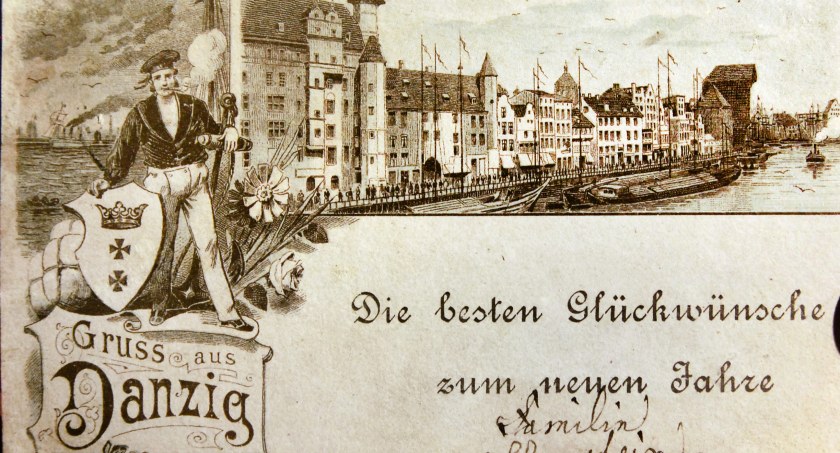 Gruss aus
Danzig
Die besten Glückwünsche
zum neuen Jahre
Familie